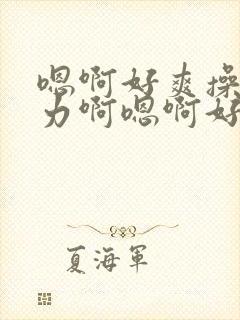 嗯啊好爽操
力啊嗯啊好
夏海軍